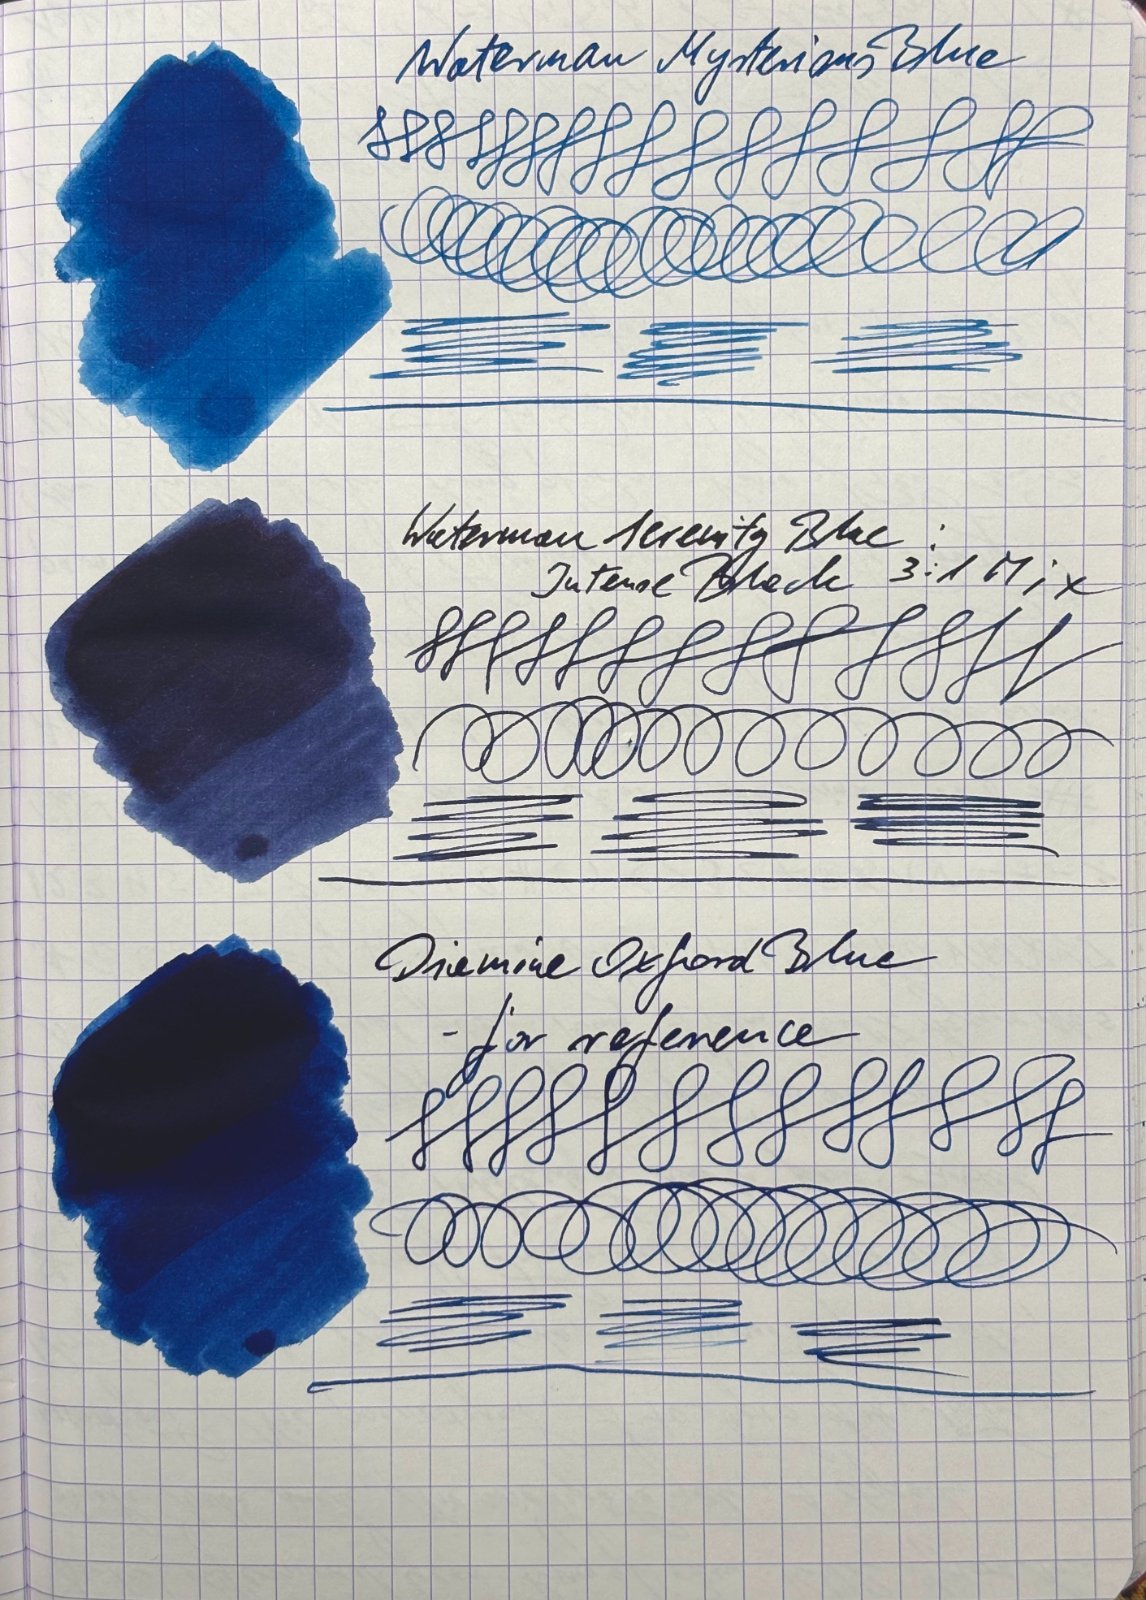 Waterman Mysterious Blue
Waterman Serenity Blue :
Intense Black 3:1 Mix
Diamine Oxford Blue
- for reference